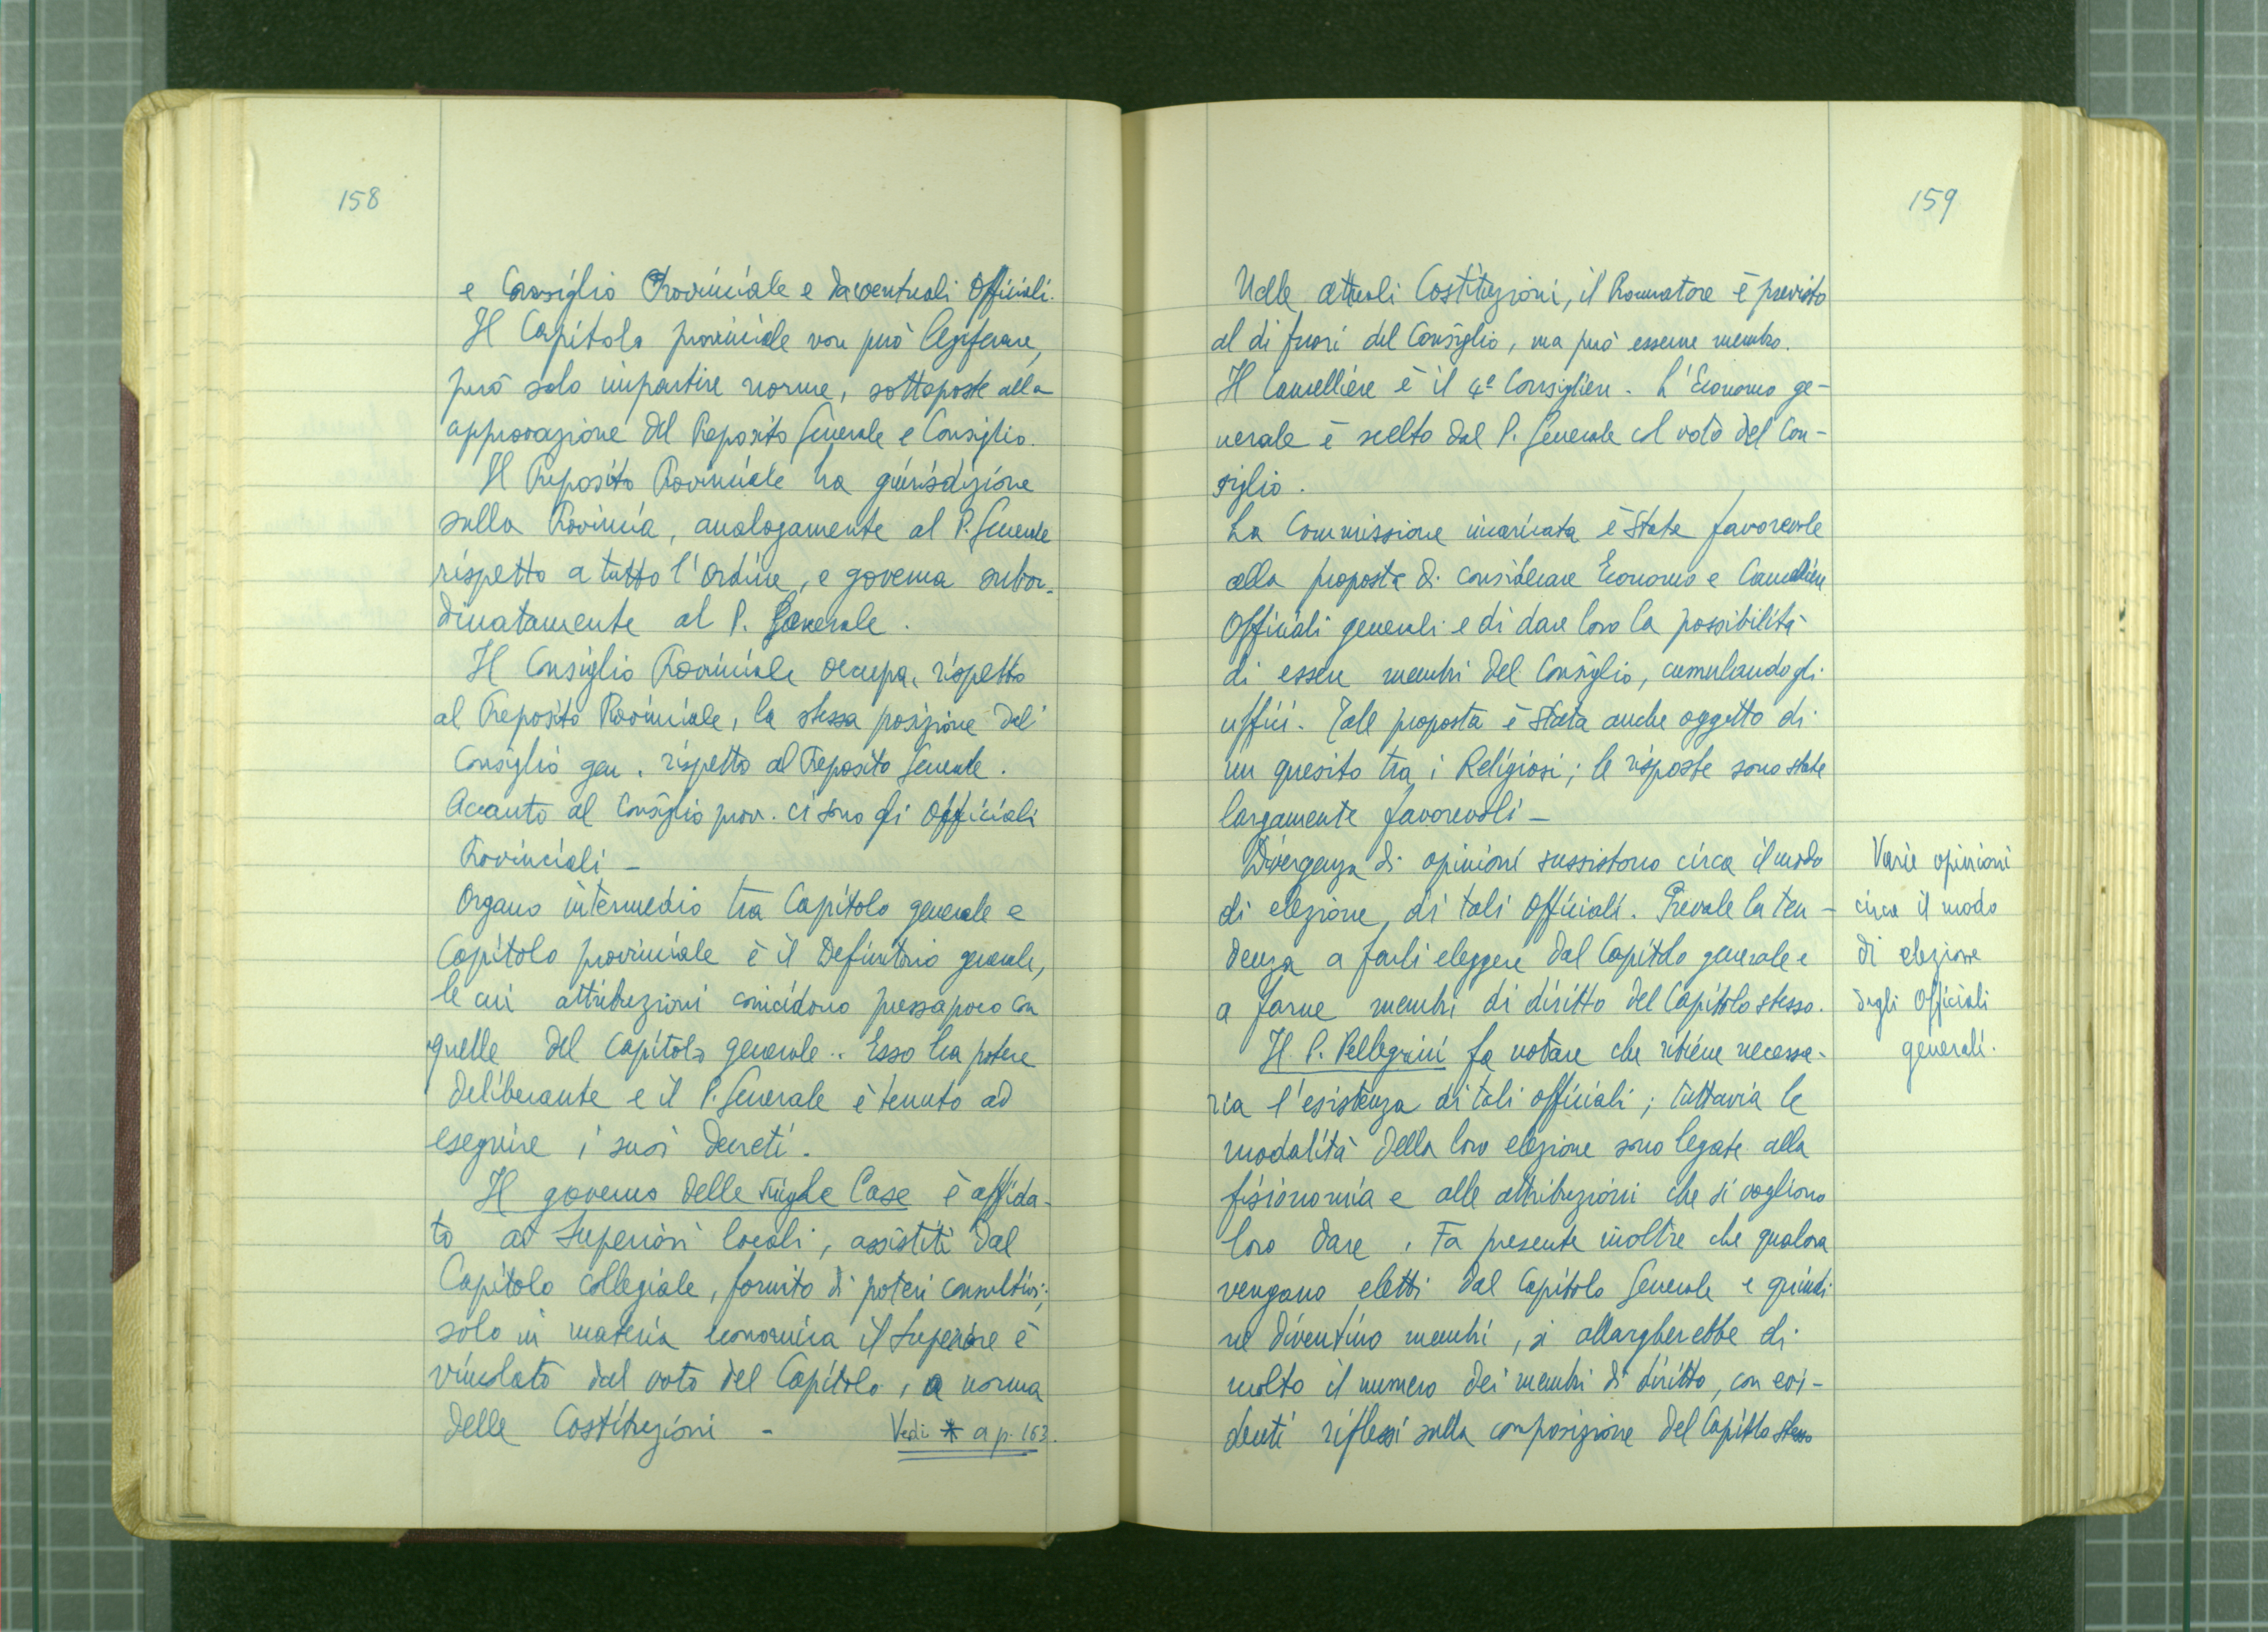 158
e Consiglio Provinciale e da eventuali Officiali.
Il Capitolo provinciale non può legiferare,
può solo impartire norme, sottoposte alla
approvazione del Preposito Generale e Consiglio.
Il Preposito Provinciale ha giurisdizione
sulla Provincia, analogamente al P. Generale
rispetto a tutto l'Ordine, e governa subor-
dinatamente al P. Generale.
Il Consiglio Provinciale occupa, rispetto
al Preposito Provinciale, la stessa posizione del
Consiglio gen. rispetto al Preposito Generale.
Accanto al Consiglio prov. ci sono gli Officiali
Provinciali -
Organo intermedio tra Capitolo generale e
Capitolo provinciale è il Definitorio generale,
le cui attribuzioni coincidono pressapoco con
quelle del Capitolo generale.. Esso ha potere
deliberante e il P. Generale è tenuto ad
eseguire i suoi decreti.
Il governo delle singole Case è affida-
to ad Superiori locali, assistiti dal
Capitolo collegiale, fornito di poteri consultivi;
solo in materia economica il Superiore è
vincolato dal voto del Capitolo, a norma
delle Costituzioni -
Vedi * a p. 163.
159
Nelle attuali Costituzioni, il Procuratore è previsto
al di fuori del Consiglio, ma può esserne membro.
Il Cancelliere è il 4º Consigliere. L'Economo ge-
nerale è scelto dal P. Generale col voto del Con-
siglio.
La Commissione incaricata è stata favorevole
alla proposta di considerare Economo e Cancelliere
Officiali generali e di dare loro la possibilità
di essere membri del Consiglio, cumulando gli
uffici. Tale proposta è stata anche oggetto di
un quesito tra i Religiosi; le risposte sono state
largamente favorevoli -
Divergenza di opinioni sussistono circa il modo
di elezione, di tali Officiali. Prevale la ten-
denza a farli eleggere dal Capitolo generale e
a farne membri di diritto del Capitolo stesso.
Il P. Pellegrini fa notare che ritiene necessa-
ria l'esistenza di tali officiali; tuttavia le
modalità della loro elezione sono legate alla
fisionomia e alle attribuzioni che si vogliono
loro dare. Fa presente inoltre che qualora
vengano eletti dal Capitolo Generale e quindi
ne diventino membri, si allargherebbe di
molto il numero dei membri di diritto, con evi-
denti riflessi sulla composizione del Capitolo stesso
Varie opinioni
circa il modo
di elezione
degli Officiali
generali.